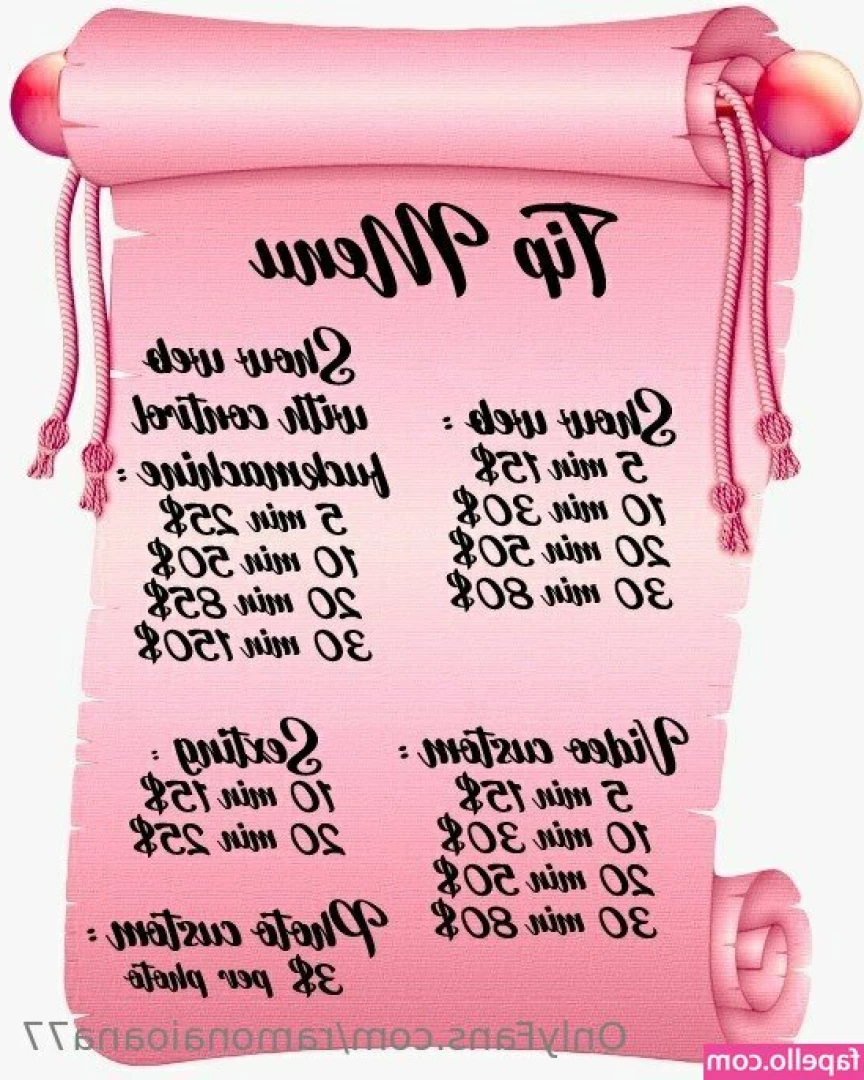 Tip Menu
Show web :
5 min 15$
10 min 30$
20 min 50$
30 min 80$
Show web
with control
fuckmachine :
5 min 25$
10 min 50$
20 min 85$
30 min 150$
Video custom :
5 min 15$
10 min 30$
20 min 50$
30 min 80$
Sexting :
10 min 15$
20 min 25$
Photo custom :
3$ per photo
OnlyFans.com/ramonaioana77
fapello.com